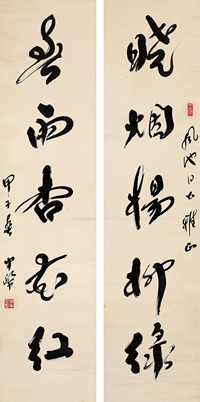 晓烟杨柳绿
风池同志雅正
春雨杏花红
甲子春